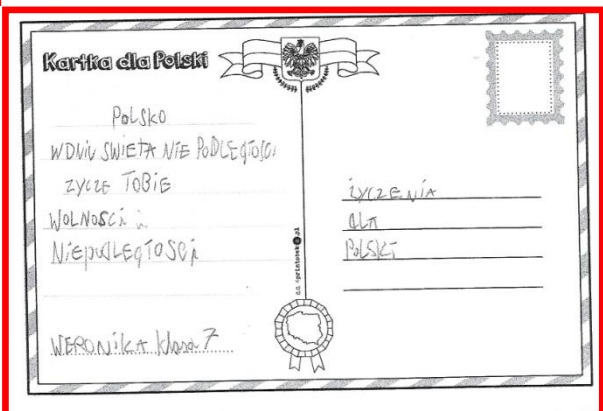 Kartka dla Polski
POLSKO
W DNIU SWIETA NIE PODLEGŁOŚCI
ZYCZE TOBIE
WOLNOŚCI i
NIEPODLEGŁOŚCi
WERONIKA klasa 7
ŻYCZENIA
DLA
POLSKI